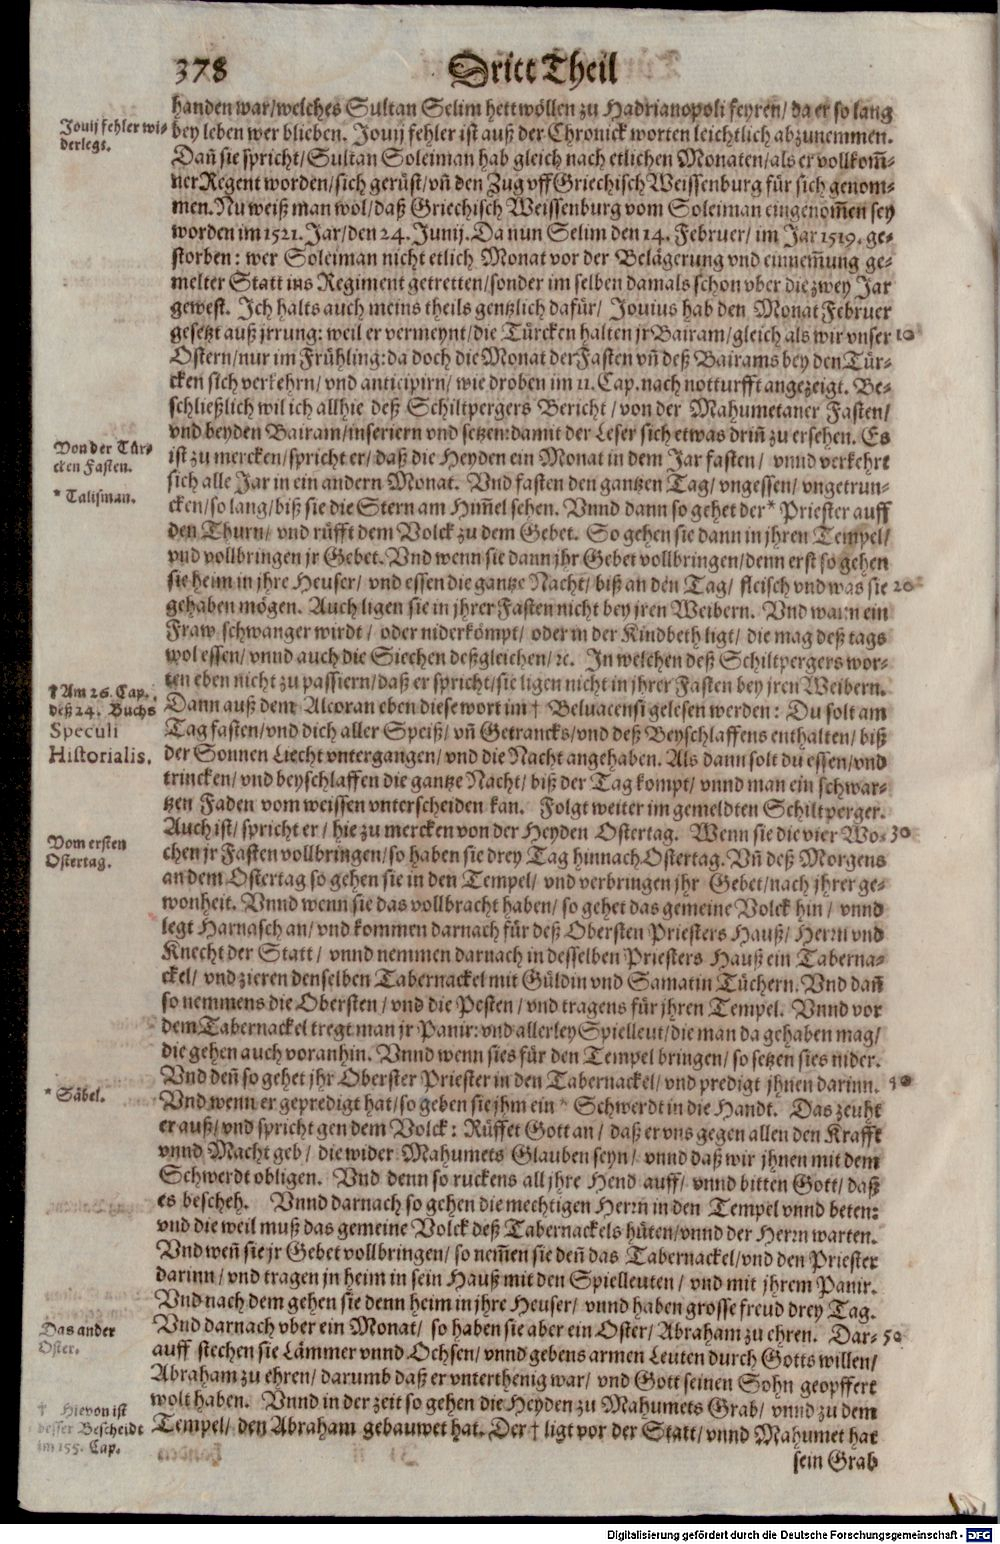 378
Dritt Theil
handen war/welches Sultan Selim hett wöllen zu Hadrianopoli feyren/ da er so lang
Jouij fehler wi-
derlegt.
bey leben wer blieben. Jouij fehler ist auß der Chronick worten leichtlich abzunemmen.
Dañ sie spricht/Sultan Soleiman hab gleich nach etlichen Monaten/als er vollkom̃-
ner Regent worden/sich gerüst/vñ den Zug vff Griechisch Weissenburg für sich genom-
men. Nu weiß man wol/daß Griechisch Weissenburg vom Soleiman eingenom̃en sey
worden im 1521. Jar/den 24. Junij. Da nun Selim den 14. Februer/ im Jar 1519. ge-
storben: wer Soleiman nicht etlich Monat vor der Belägerung vnd einnem̃ung ge-
melter Statt ins Regiment getretten/sonder im selben damals schon vber die zwey Jar
gewest. Ich halts auch meins theils gentzlich dafür/ Jouius hab den Monat Februer
gesetzt auß jrrung: weil er vermeynt/die Türcken halten jr Bairam/gleich als wir vnser 10
Ostern/nur im Frühling: da doch die Monat der Fasten vñ deß Bairams bey den Tür-
cken sich verkehrn/ vnd anticipirn/ wie droben im 11. Cap. nach notturfft angezeigt. Be-
schließlich wil ich allhie deß Schiltpergers Bericht/ von der Mahumetaner Fasten/
vnd beyden Bairam/inseriern vnd setzen: damit der Leser sich etwas drin̄ zu ersehen. Es
Von der Tür-
cken Fasten.
ist zu mercken/spricht er/ daß die Heyden ein Monat in dem Jar fasten/ vnnd verkehrt
sich alle Jar in ein andern Monat. Vnd fasten den gantzen Tag/ vngessen/ vngetrun-
* Talisman.
cken/so lang/biß sie die Stern am Him̃el sehen. Vnnd dann so gehet der* Priester auff
den Thurn/ vnd rüfft dem Volck zu dem Gebet. So gehen sie dann in jhren Tempel/
vnd vollbringen jr Gebet. Vnd wenn sie dann jhr Gebet vollbringen/denn erst so gehen
sie heim in jhre Heuser/ vnd essen die gantze Nacht/ biß an den Tag/ fleisch vnd was sie 20
gehaben mögen. Auch ligen sie in jhrer Fasten nicht bey jren Weibern. Vnd wann ein
Fraw schwanger wirdt/ oder niderkömpt/ oder in der Kindbeth ligt/ die mag deß tags
wol essen/ vnnd auch die Siechen deßgleichen/ ꝛc. In welchen deß Schiltpergers wor-
ten eben nicht zu passiern/daß er spricht/sie ligen nicht in jhrer Fasten bey jren Weibern.
† Am 26. Cap.
deß 24. Buchs
Speculi
Historialis.
Dann auß dem Alcoran eben diese wort im † Beluacensi gelesen werden: Du solt am
Tag fasten/vnd dich aller Speiß/ vñ Getrancks/vnd deß Beyschlaffens enthalten/ biß
der Sonnen Liecht vntergangen/ vnd die Nacht angehaben. Als dann solt du essen/vnd
trincken/ vnd beyschlaffen die gantze Nacht/ biß der Tag kompt/ vnnd man ein schwar-
tzen Faden vom weissen vnterscheiden kan. Folgt weiter im gemeldten Schiltperger.
Vom ersten
Ostertag.
Auch ist/ spricht er/ hie zu mercken von der Heyden Ostertag. Wenn sie die vier Wo- 30
chen jr Fasten vollbringen/so haben sie drey Tag hinnach Ostertag. Vñ deß Morgens
an dem Ostertag so gehen sie in den Tempel/ vnd verbringen jhr Gebet/nach jhrer ge-
wonheit. Vnnd wenn sie das vollbracht haben/ so gehet das gemeine Volck hin/ vnnd
legt Harnasch an/ vnd kommen darnach für deß Obersten Priesters Hauß/ Herrn vnd
Knecht der Statt/ vnnd nemmen darnach in desselben Priesters Hauß ein Taberna-
ckel/ vnd zieren denselben Tabernackel mit Güldin vnd Samatin Tüchern. Vnd dañ
so nemmens die Obersten/ vnd die Pesten/ vnd tragens für jhren Tempel. Vnnd vor
dem Tabernackel tregt man jr Panir: vnd allerley Spielleut/die man da gehaben mag/
die gehen auch voranhin. Vnnd wenn sies für den Tempel bringen/ so setzen sies nider.
Vnd deñ so gehet jhr Oberster Priester in den Tabernackel/ vnd predigt jhnen darinn. 40
* Säbel.
Vnd wenn er gepredigt hat/so geben sie jhm ein * Schwerdt in die Handt. Das zeuht
er auß/ vnd spricht gen dem Volck: Rüffet Gott an/ daß er vns gegen allen den Krafft
vnnd Macht geb/ die wider Mahumets Glauben seyn/ vnnd daß wir jhnen mit dem
Schwerdt obligen. Vnd denn so ruckens all jhre Hend auff/ vnnd bitten Gott/ daß
es bescheh. Vnnd darnach so gehen die mechtigen Herrn in den Tempel vnnd beten:
vnd die weil muß das gemeine Volck deß Tabernackels hüten/vnnd der Herrn warten.
Vnd weñ sie jr Gebet vollbringen/ so nem̃en sie deñ das Tabernackel/vnd den Priester
darinn/ vnd tragen jn heim in sein Hauß mit den Spielleuten/ vnd mit jhrem Panir.
Vnd nach dem gehen sie denn heim in jhre Heuser/ vnnd haben grosse freud drey Tag.
Das ander
Oster.
Vnd darnach vber ein Monat/ so haben sie aber ein Oster/ Abraham zu ehren. Dar- 50
auff stechen sie Lämmer vnnd Ochsen/ vnnd gebens armen Leuten durch Gotts willen/
Abraham zu ehren/ darumb daß er vnterthenig war/ vnd Gott seinen Sohn geopffert
† Hievon ist
besser Bescheidt
im 155. Cap.
wolt haben. Vnnd in der zeit so gehen die Heyden zu Mahumets Grab/ vnnd zu dem
Tempel/ den Abraham gebauwet hat. Der † ligt vor der Statt/ vnnd Mahumet hat
sein Grab
Digitalisierung gefördert durch die Deutsche Forschungsgemeinschaft - DFG